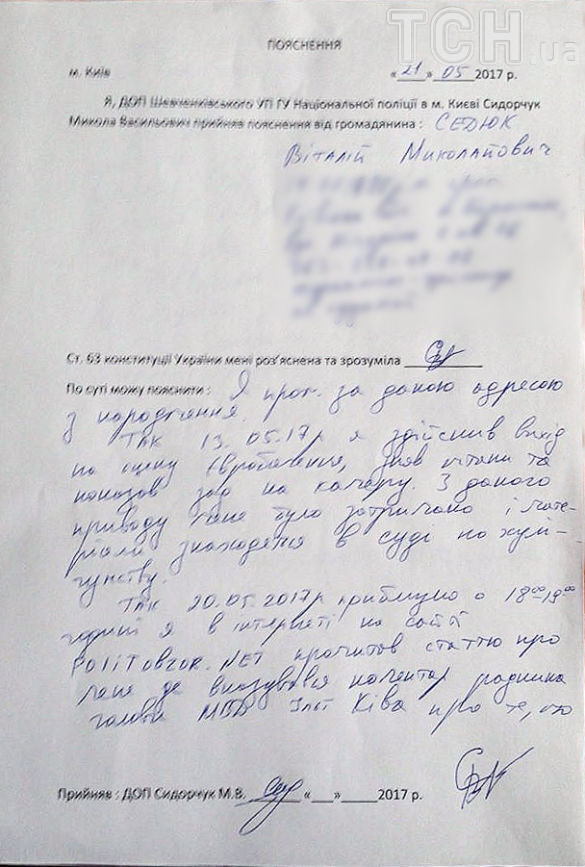 ТСН.ua
ПОЯСНЕННЯ
м. Київ « 21 » 05 2017 р.
Я, ДОП Шевченківського УП ГУ Національної поліції в м. Києві Сидорчук
Микола Васильович прийняв пояснення від громадянина : СЕДЮК
Віталій Миколайович
Ст. 63 конституції України мені роз'яснена та зрозуміла
По суті можу пояснити : Я прож. за даною адресою
з народження.
Так 13.05.17р я здійснив вихід
на сцену Євробачення, зняв штани та
показав зад на камеру. З даного
приводу мене було затримано і мате-
ріали знаходяться в суді по хулі-
ганству.
Так 20.05.2017р приблизно о 18⁰⁰-19⁰⁰
годині я в інтернеті на сайті
Politobzor.NET прочитав статтю про
мене де висказувався коментар радника
голови МВД Іллі Ківа про те, що
Прийняв : ДОП Сидорчук М.В. « » 2017 р.